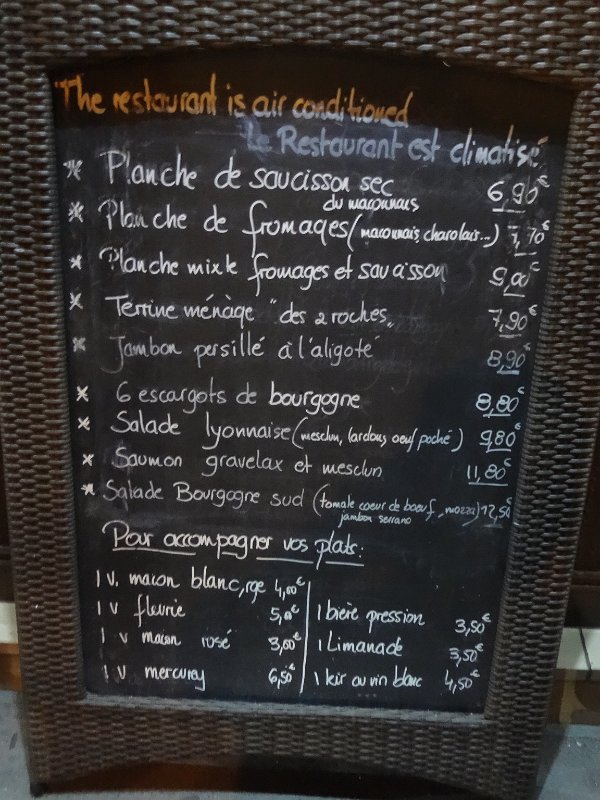 The restaurant is air conditioned
Le Restaurant est climatisé
* Planche de saucisson sec 6,90€
* Planche de fromages du maconnais (maconnais, charolais...) 7,70€
* Planche mixte fromages et saucisson 9,00€
* Terrine ménàge "des 2 roches" 7,90€
* Jambon persillé à l'aligoté 8,90€
* 6 escargots de bourgogne 8,80€
* Salade lyonnaise (mesclun, lardons, oeuf poché) 9,80€
* Saumon gravelax et mesclun 11,80€
* Salade Bourgogne sud (tomate coeur de boeuf, mozza) 12,50€
jambon serrano
Pour accompagner vos plats:
1 v. macon blanc, rge 4,00€
1 v fleurie 5,00€
1 v macon rosé 3,00€
1 v mercurey 6,50€
1 biere pression 3,50€
1 Limanade 3,50€
1 kir au vin blanc 4,50€